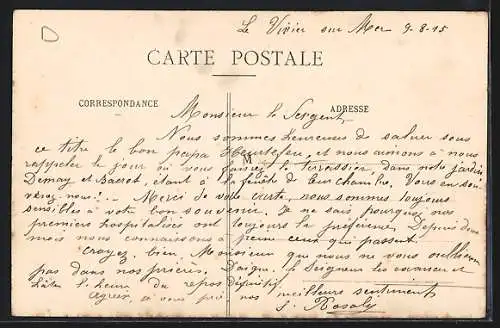 Le Vivier sur Mer 9-8-15
CARTE POSTALE
CORRESPONDANCE
ADRESSE
Monsieur le Sergent,
Nous sommes heureuses de saluer sous
ce titre le bon papa et nous aimons à nous
rappeler le jour où vous faisiez le terrassier dans notre jardin
Dimay et Bacrot, étant à la fenêtre de leur chambre. Vous en sou-
venez-vous? Merci de votre carte, nous sommes toujours
sensibles à votre bon souvenir. Je ne sais pourquoi nos
premiers hospitalisés ont toujours la préférence. Depuis deux
mois nous connaissons à peine ceux qui passent.
Croyez bien, Monsieur que nous ne vous oublierons
pas dans nos prières. Daigne le Seigneur les exaucer et
hâter l'heure du repos définitif,
Agréez, meilleurs sentiments
S. Rosaly